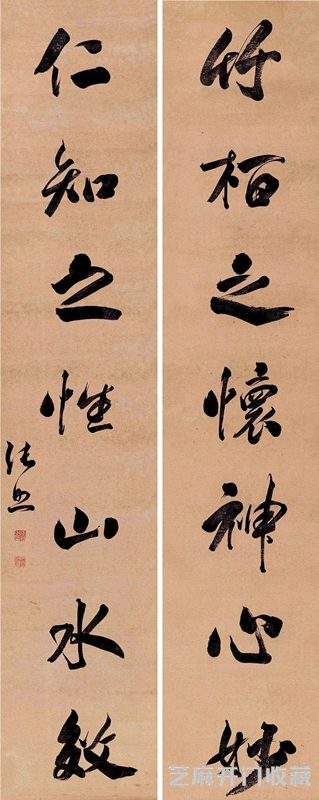 竹栢之懷神心妙
仁知之性山水效
張照
芝麻开门收藏